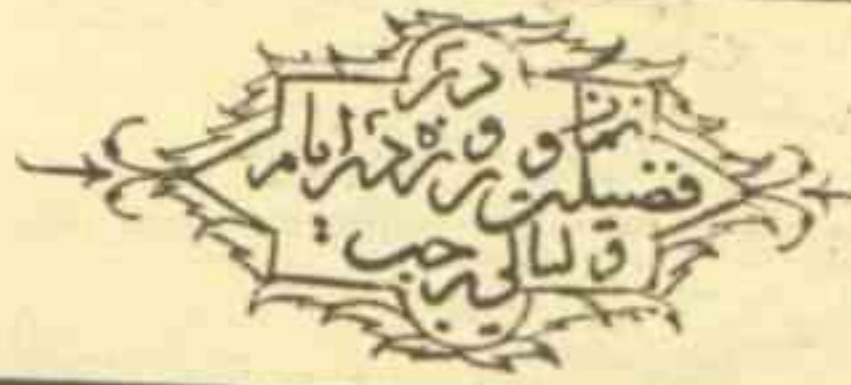 در
فضیلت نماز و روزه در ایام
و لیالی رجب :